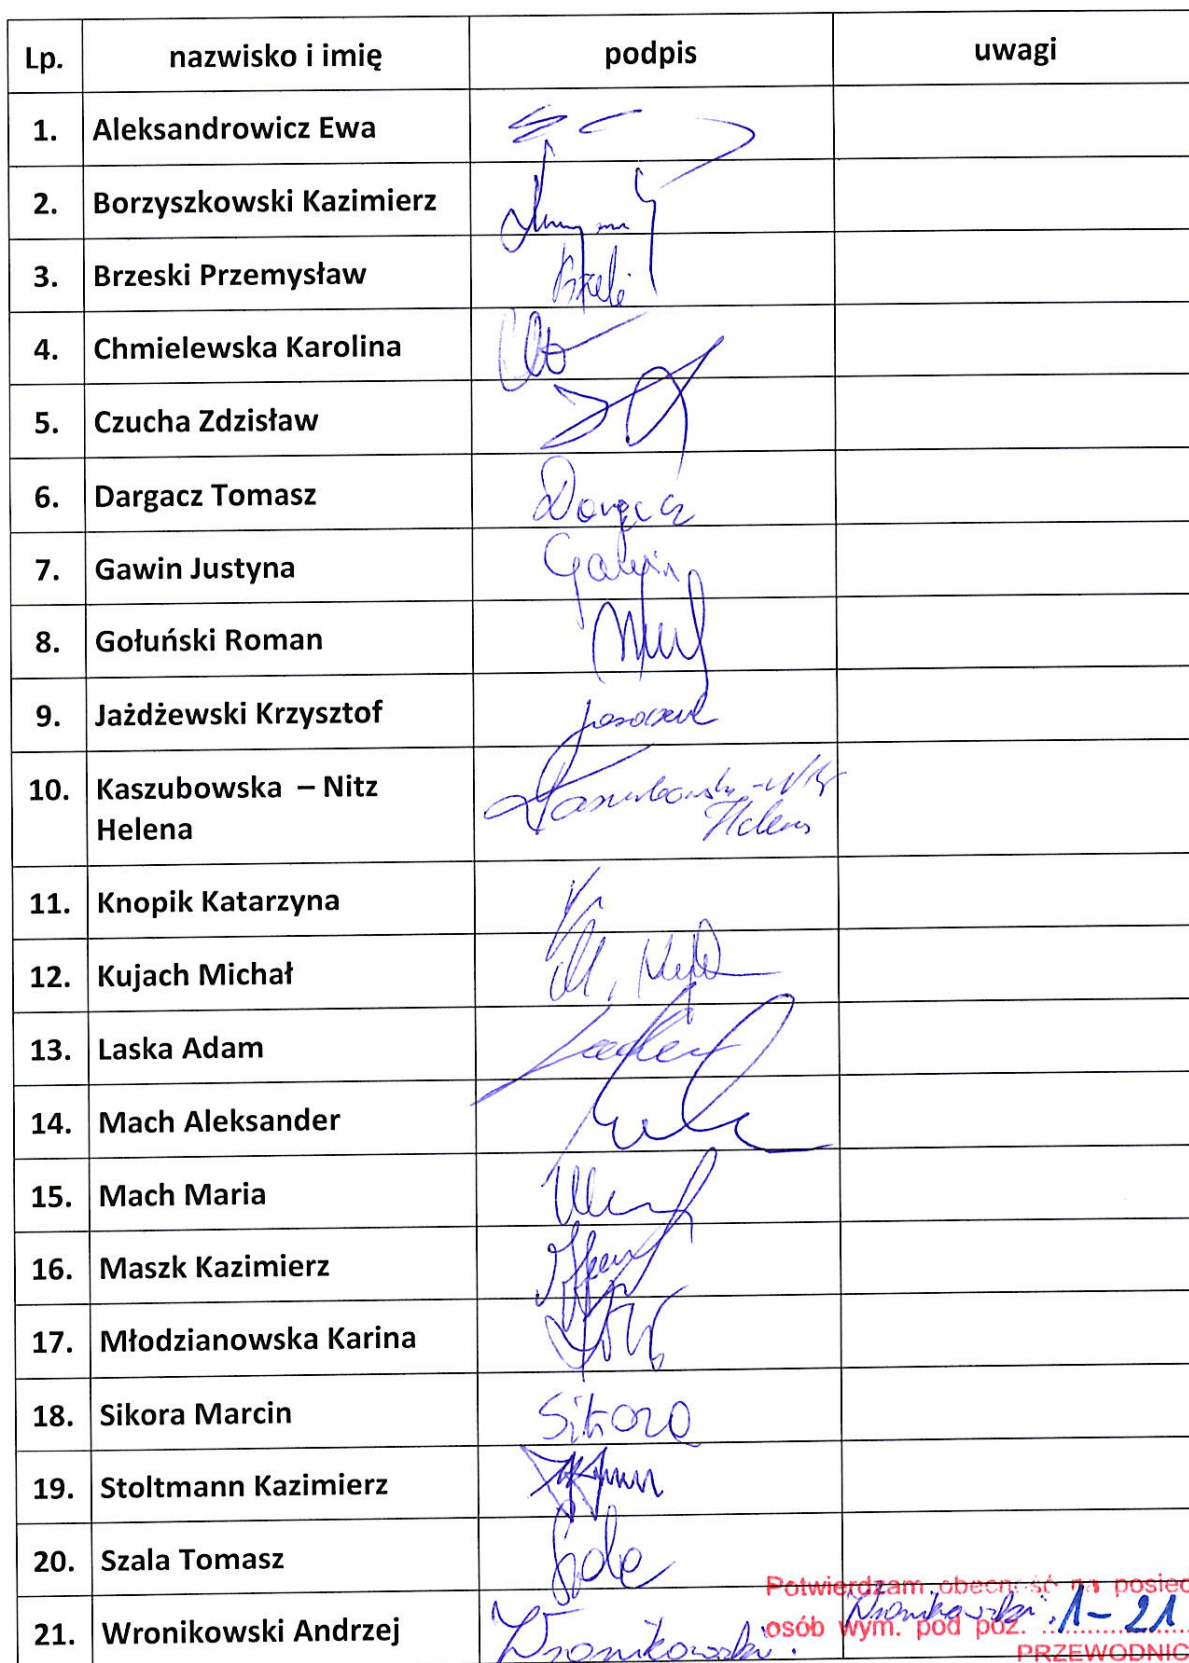 Lp. nazwisko i imię podpis uwagi
1. Aleksandrowicz Ewa
2. Borzyszkowski Kazimierz
3. Brzeski Przemysław
4. Chmielewska Karolina
5. Czucha Zdzisław
6. Dargacz Tomasz Dargacz
7. Gawin Justyna Gawin
8. Gołuński Roman
9. Jażdżewski Krzysztof
10. Kaszubowska – Nitz Kaszubowska-Nitz
Helena Helena
11. Knopik Katarzyna
12. Kujach Michał
13. Laska Adam
14. Mach Aleksander
15. Mach Maria
16. Maszk Kazimierz
17. Młodzianowska Karina
18. Sikora Marcin Sikora
19. Stoltmann Kazimierz
20. Szala Tomasz
Potwierdzam obecność na posied
21. Wronikowski Andrzej Wronikowski. Wronikowski.
osób wym. pod poz. ... 1-21
PRZEWODNIC